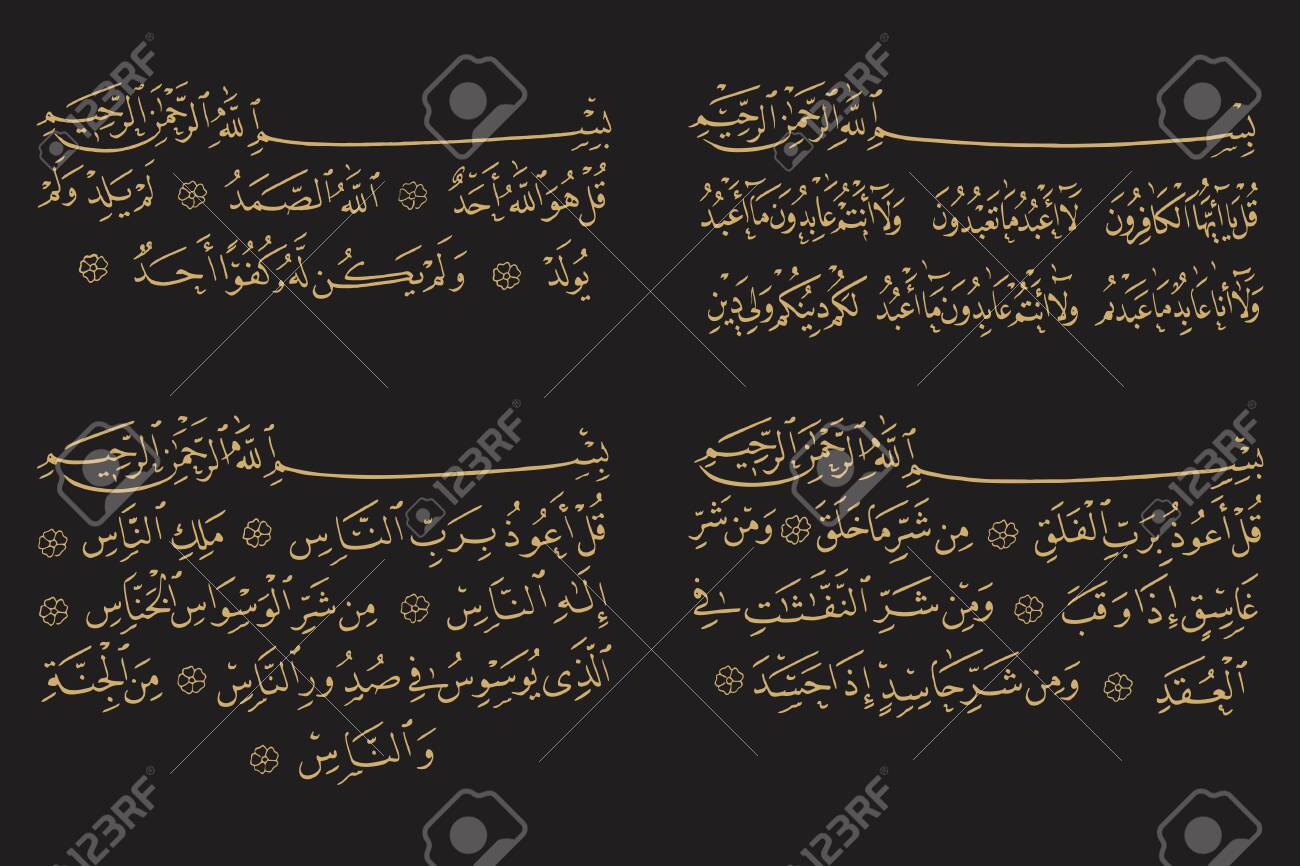 بِسْمِ ٱللَّهِ ٱلرَّحْمَٰنِ ٱلرَّحِيمِ
قُلْ يَا أَيُّهَا الْكَافِرُونَ لَا أَعْبُدُ مَا تَعْبُدُونَ وَلَا أَنْتُمْ عَابِدُونَ مَا أَعْبُدُ
وَلَا أَنَا عَابِدٌ مَا عَبَدْتُمْ وَلَا أَنْتُمْ عَابِدُونَ مَا أَعْبُدُ لَكُمْ دِينُكُمْ وَلِيَ دِينِ
بِسْمِ ٱللَّهِ ٱلرَّحْمَٰنِ ٱلرَّحِيمِ
قُلْ هُوَ ٱللَّهُ أَحَدٌ ٱللَّهُ ٱلصَّمَدُ لَمْ يَلِدْ وَلَمْ
يُولَدْ وَلَمْ يَكُن لَّهُ كُفُوًا أَحَدٌ
بِسْمِ ٱللَّهِ ٱلرَّحْمَٰنِ ٱلرَّحِيمِ
قُلْ أَعُوذُ بِرَبِّ ٱلْفَلَقِ مِن شَرِّ مَا خَلَقَ وَمِن شَرِّ
غَاسِقٍ إِذَا وَقَبَ وَمِن شَرِّ ٱلنَّفَّٰثَٰتِ فِي
ٱلْعُقَدِ وَمِن شَرِّ حَاسِدٍ إِذَا حَسَدَ
بِسْمِ ٱللَّهِ ٱلرَّحْمَٰنِ ٱلرَّحِيمِ
قُلْ أَعُوذُ بِرَبِّ ٱلنَّاسِ مَلِكِ ٱلنَّاسِ
إِلَٰهِ ٱلنَّاسِ مِن شَرِّ ٱلْوَسْوَاسِ ٱلْخَنَّاسِ
ٱلَّذِى يُوَسْوِسُ فِي صُدُورِ ٱلنَّاسِ مِنَ ٱلْجِنَّةِ
وَٱلنَّاسِ
123RF
123RF
123RF
123RF
123RF
123RF